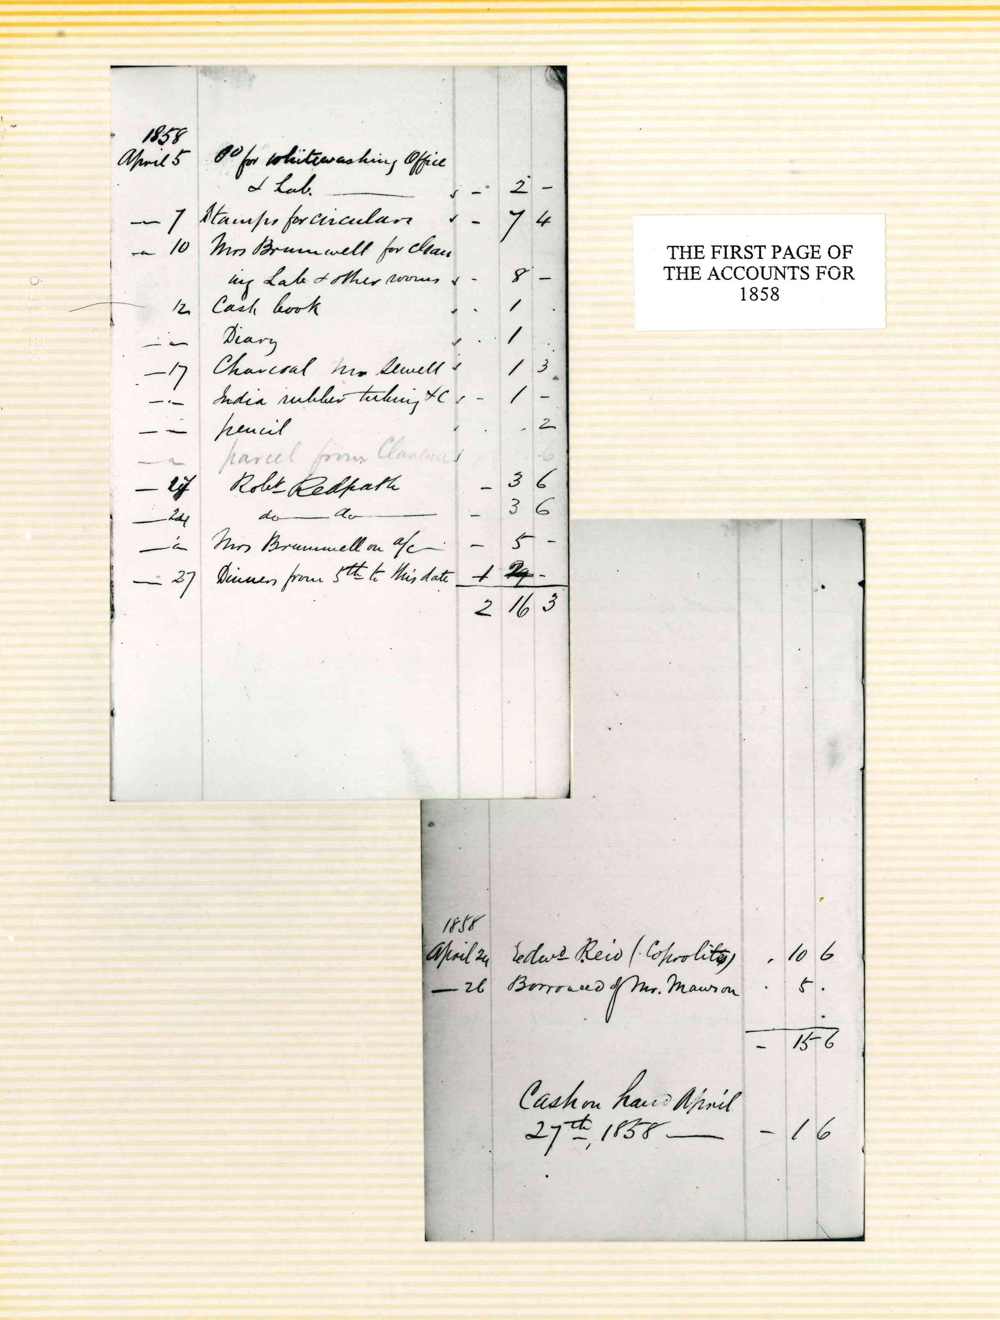 1858
April 5 Pd for whitewashing Office
& Lab. — - 2 -
— 7 Stamps for circulars - 7 4
— 10 Mrs Brumwell for clean
ing Lab & other rooms - 8 -
12 Cash book 1
Diary 1
— 17 Charcoal Mr Sewell 1 3
— India rubber tubing &c - 1 -
— pencil 2
— parcel from 6
— 27 Robt Redpath - 3 6
— 24 do — do — - 3 6
— Mrs Brumwell on a/c - 5 -
— 27 Dinners from 5th to this date 1 -
2 16 3
THE FIRST PAGE OF
THE ACCOUNTS FOR
1858
1858
April 24 Edwd Reid (Coprolites) 10 6
— 26 Borrowed of Mr. Mawson 5
- 15 6
Cash on hand April
27th, 1858 — - 1 6